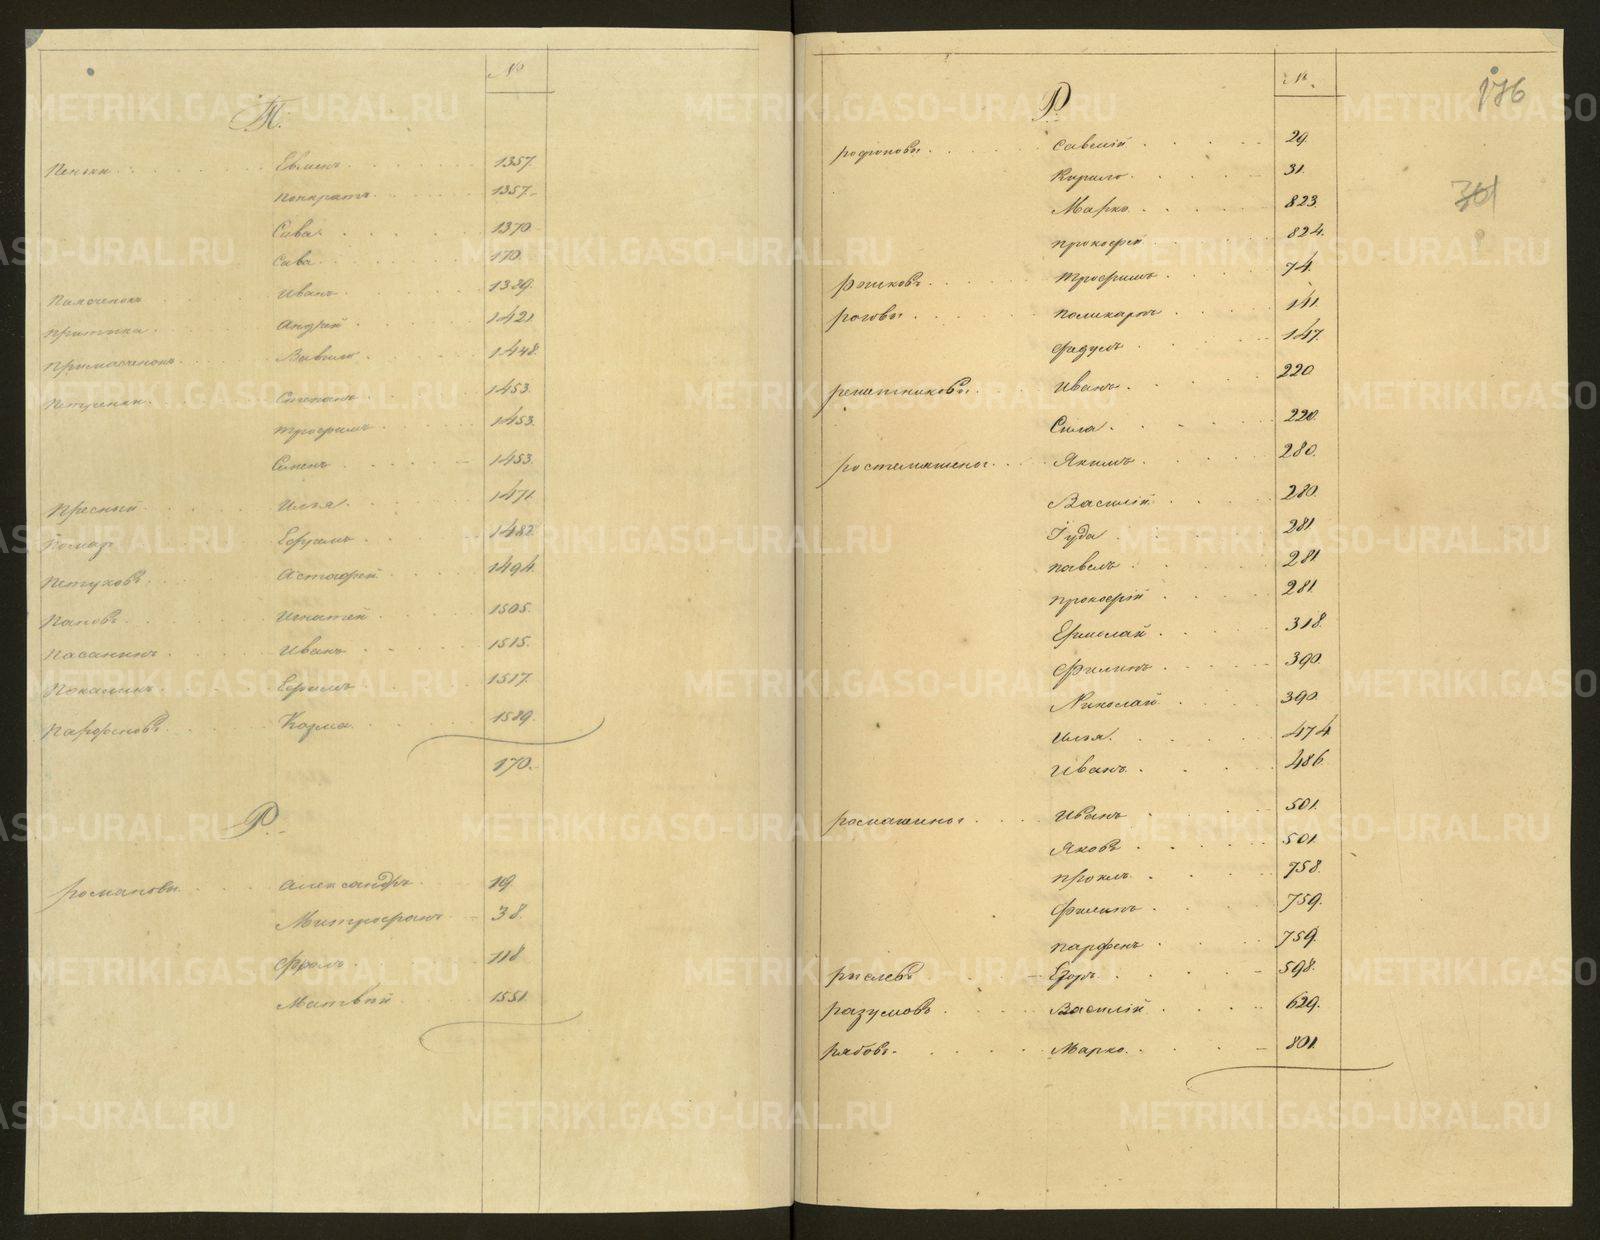 №
П.
Пеньки Евгенъ. 1357.
Понкратъ. 1357.
Сава. 1370
Сава. 170.
Иванъ. 1389.
Притыка. Андрей 1421
Вавило. 1448.
Петренки. Степанъ. 1453.
Трофимъ. 1453.
Семенъ. 1453.
Пресный. Илья. 1471
Ефремъ. 1482
Петуховъ. Астафей. 1494.
Паповъ. Игнатей 1505.
Пасанинъ. Иванъ. 1515.
Покалинъ. Ефимъ. 1517.
Парфеновъ Козма. 1589.
170.
Р.
Романовы. Александръ. 19.
Митрофанъ. 38.
Фролъ. 118
Матвей. 1551.
№
176
Р.
301
Родионовы. Савелій 29.
Кирило. 31.
Марко. 823.
Прокофей. 824.
Рожковъ. Трофимъ. 74.
Роговы. Поликарпъ. 141.
Федулъ. 147.
Решетниковы. Иванъ. 220
Сила. 220.
Ростемяшены. Якимъ. 280.
Василій. 280.
Іуда 281
Павелъ. 281
Прокофій 281.
Ермолай. 318.
Филипъ. 390.
Николай. 390.
Илья. 474
Иванъ. 486.
Ромашины. Иванъ 501.
Яковъ. 501
Проклъ. 758.
Филипъ. 759.
Парфенъ. 759.
Рыслевъ Егоръ. 598.
Разумовъ. Василій. 629.
Рябовъ. Марко. 801.
METRIKI.GASO-URAL.RU